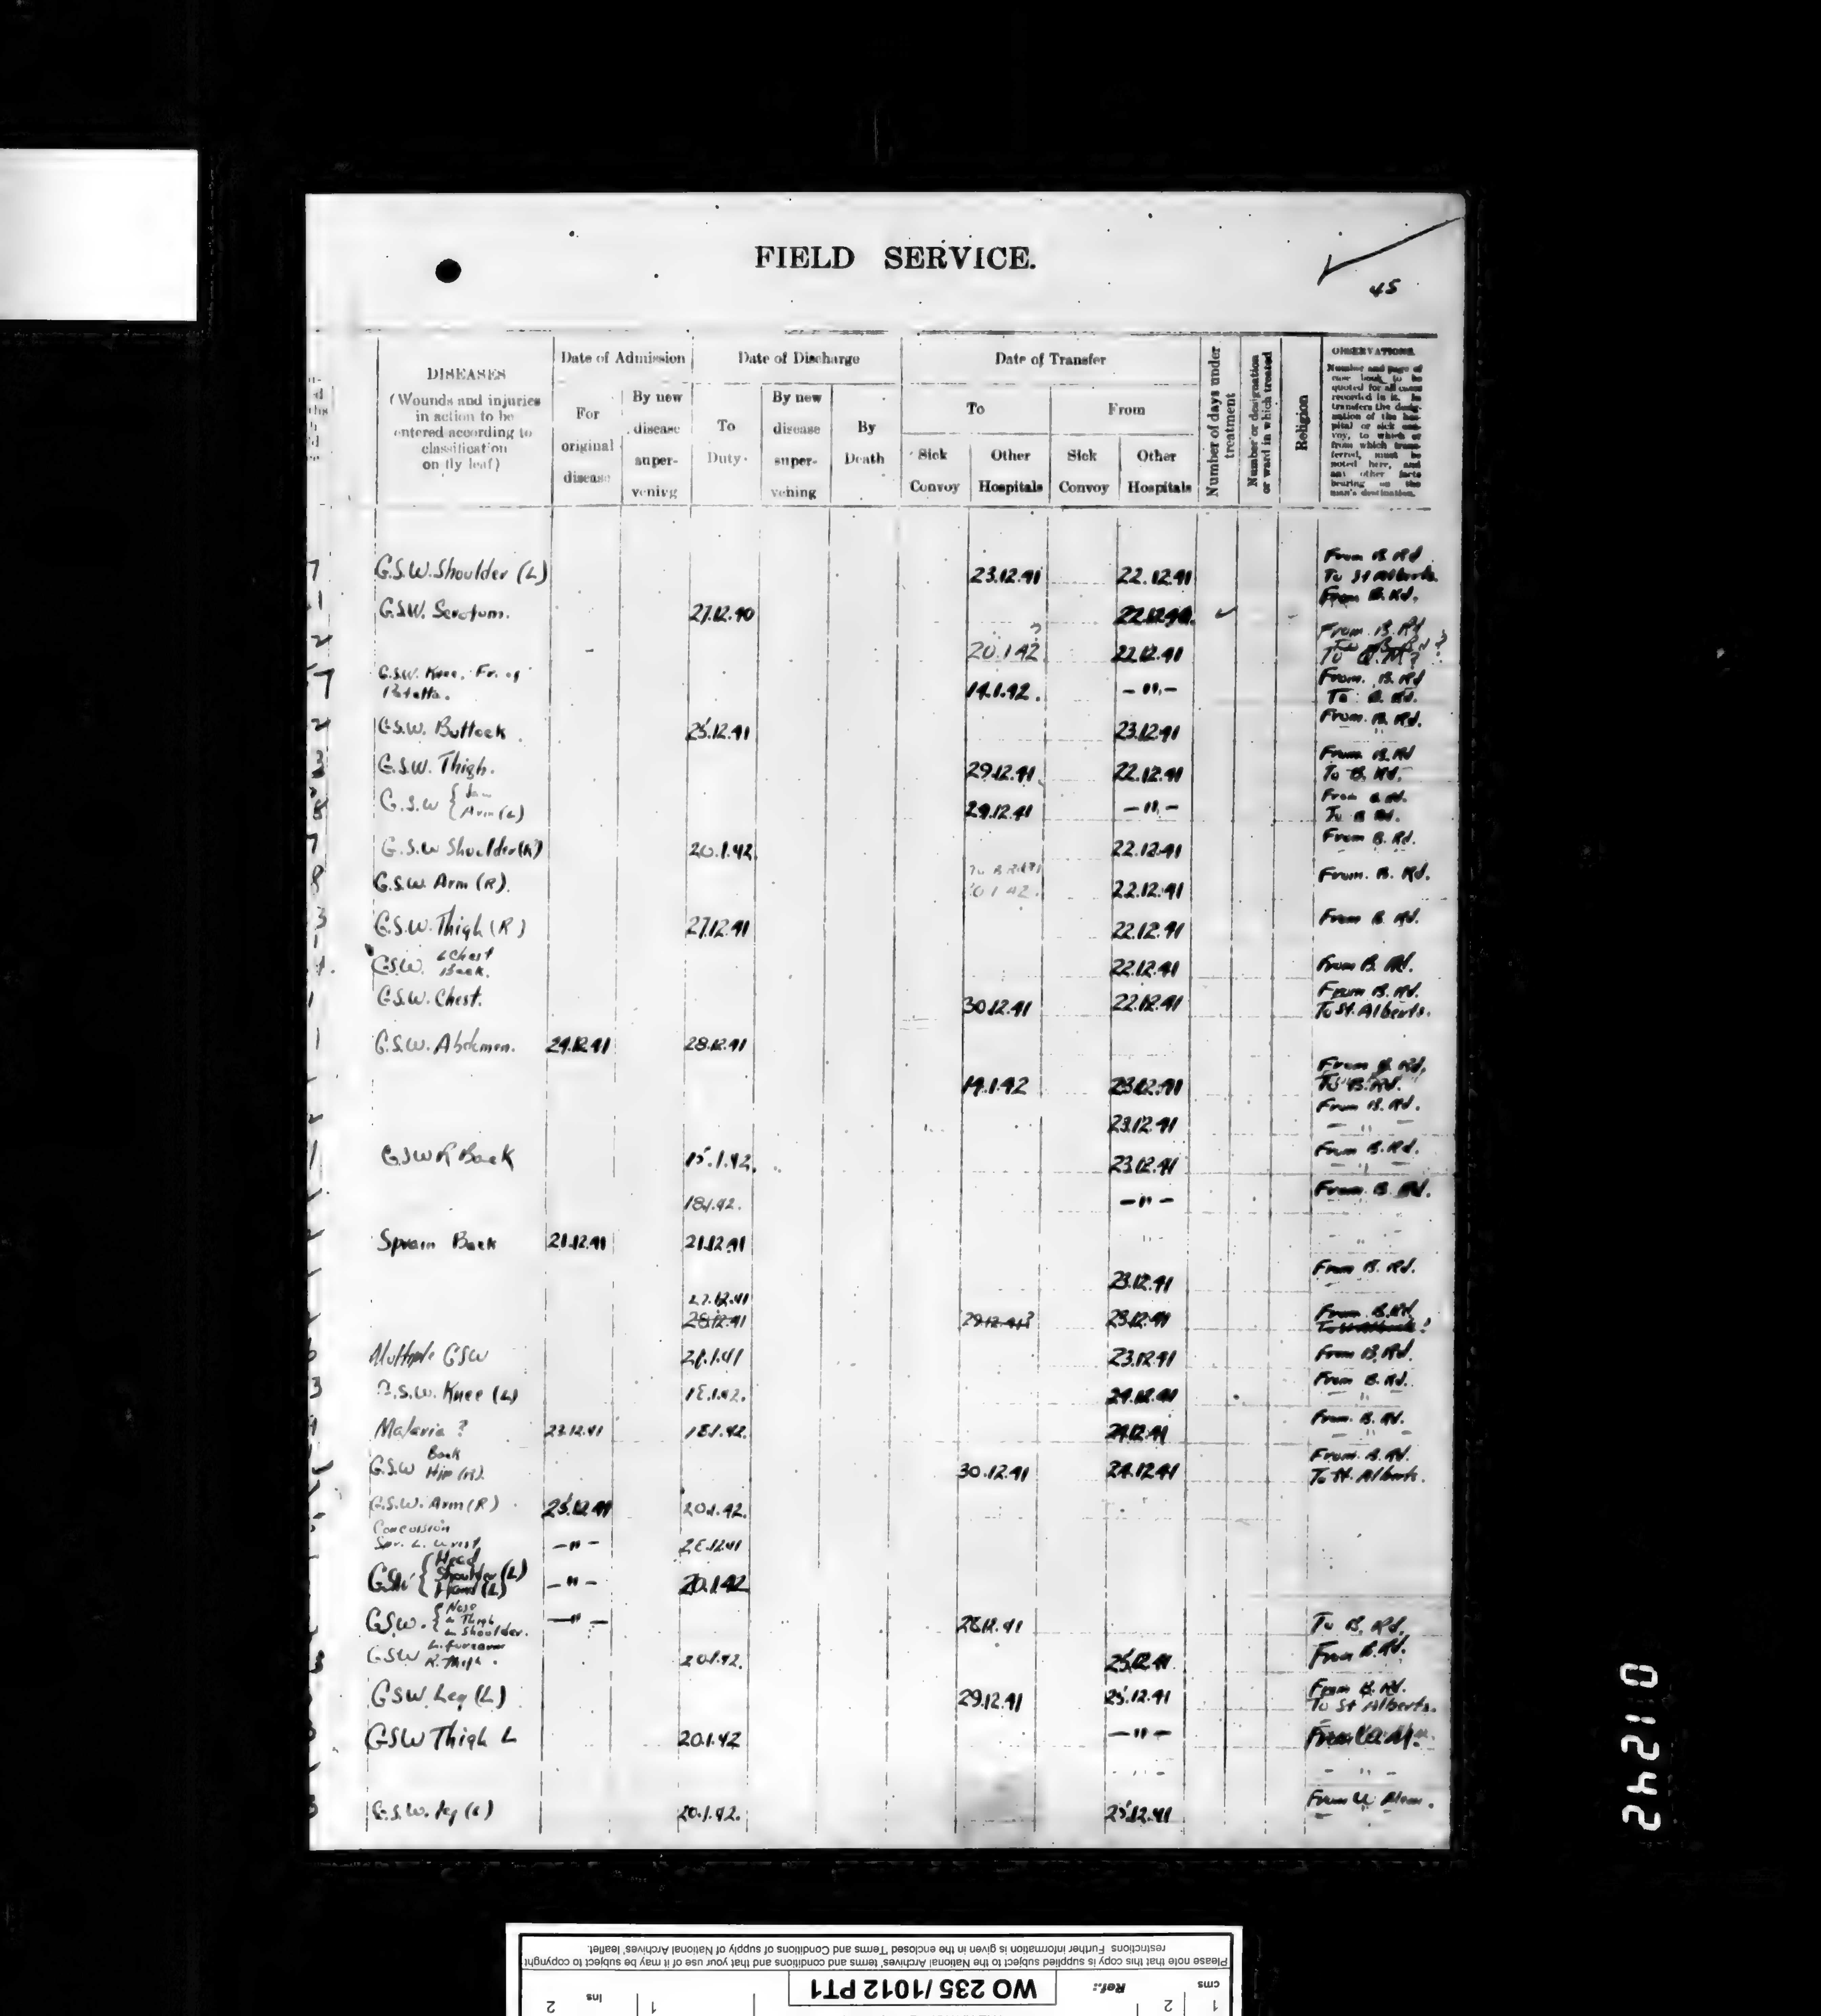 FIELD SERVICE.
45
DISEASES
(Wounds and injuries
in action to be
entered according to
classification
on fly leaf)
Date of Admission
For
original
disease
By new
disease
super-
vening
Date of Discharge
To
Duty.
By new
disease
super-
vening
By
Death
Date of Transfer
To
From
Sick
Convoy
Other
Hospitals
Sick
Convoy
Other
Hospitals
Number of days under
treatment
Number or designation
or ward in which treated
Religion
OBSERVATIONS.
Number and page of
case book to be
quoted for all cases
recorded in it. In
transfers the desig-
nation of the hos-
pital or sick con-
voy, to which or
from which trans-
ferred, must be
noted here, and
any other facts
bearing on the
man's destination.
7 G.S.W. Shoulder (L) 23.12.41 22.12.41 From B. Rd
To St Alberts.
1 G.S.W. Scrotum. 27.12.40 From B. Rd.
2 ? 20.1.42 22.12.41 From B. Rd
7 G.S.W. Knee, Fr. of
Patella. 14.1.42. —"— From. B. Rd
To B. Rd.
2 G.S.W. Buttock. 25.12.41 23.12.41 From. B. Rd.
3 G.S.W. Thigh. 29.12.41 22.12.41 From B. Rd
To B. Rd.
8 G.S.W { Jaw
Arm (L) 29.12.41 —"— From B. Rd.
To B Rd.
7 G.S.W Shoulder (R) 20.1.42 22.12.41 From B. Rd.
8 G.S.W. Arm (R). 22.12.41 From. B. Rd.
3 G.S.W. Thigh (R) 27.12.41 22.12.41 From B. Rd.
G.S.W. L Chest
Back. 22.12.41 From B. Rd.
1 G.S.W. Chest. 30.12.41 22.12.41 From B. Rd.
To St. Alberts.
1 G.S.W. Abdomen. 24.12.41 28.12.41
14.1.42 23.12.41 From B. Rd.
To B. Rd.
2 23.12.41 From B. Rd.
1 GSW R Back 15.1.42. 23.12.41 From B. Rd.
18.1.42. —"— From B. Rd.
Sprain Back 21.12.41 21.12.41
23.12.41 From B. Rd.
27.12.41
28.12.41 29.12.41? 23.12.41 From B. Rd
To St Alberts !
Multiple GSW 23.12.41 From B. Rd.
3 G.S.W. Knee (L) 24.12.41 From B. Rd.
Malaria ? 23.12.41 24.12.41 From. B. Rd.
G.S.W Back
Hip (R). 30.12.41 24.12.41 From. B. Rd.
To St. Alberts.
G.S.W. Arm (R) 25.12.41 20.1.42.
Concussion
Spr. L. Wrist —"—
GSW { Head
Shoulder (L)
Hand (L) —"— 20.1.42
GSW. { Nose
L Thigh
L Shoulder. —"— 28.12.41 To B. Rd.
3 GSW L. forearm
R. Thigh. 20.1.42. 25.12.41 From B. Rd.
GSW Leg (L) 29.12.41 25.12.41 From B. Rd.
To St Alberts.
GSW Thigh L 20.1.42 —"—
G.S.W. Leg (L) 20.1.42. 25.12.41 From W Mem.
01242
Please note that this copy is supplied subject to the National Archives' terms and conditions and that your use of it may be subject to copyright
restrictions. Further information is given in the enclosed 'Terms and Conditions of supply of National Archives' leaflet.
cms 1 2
Ref.: WO 235/1012 PT1
ins 1 2